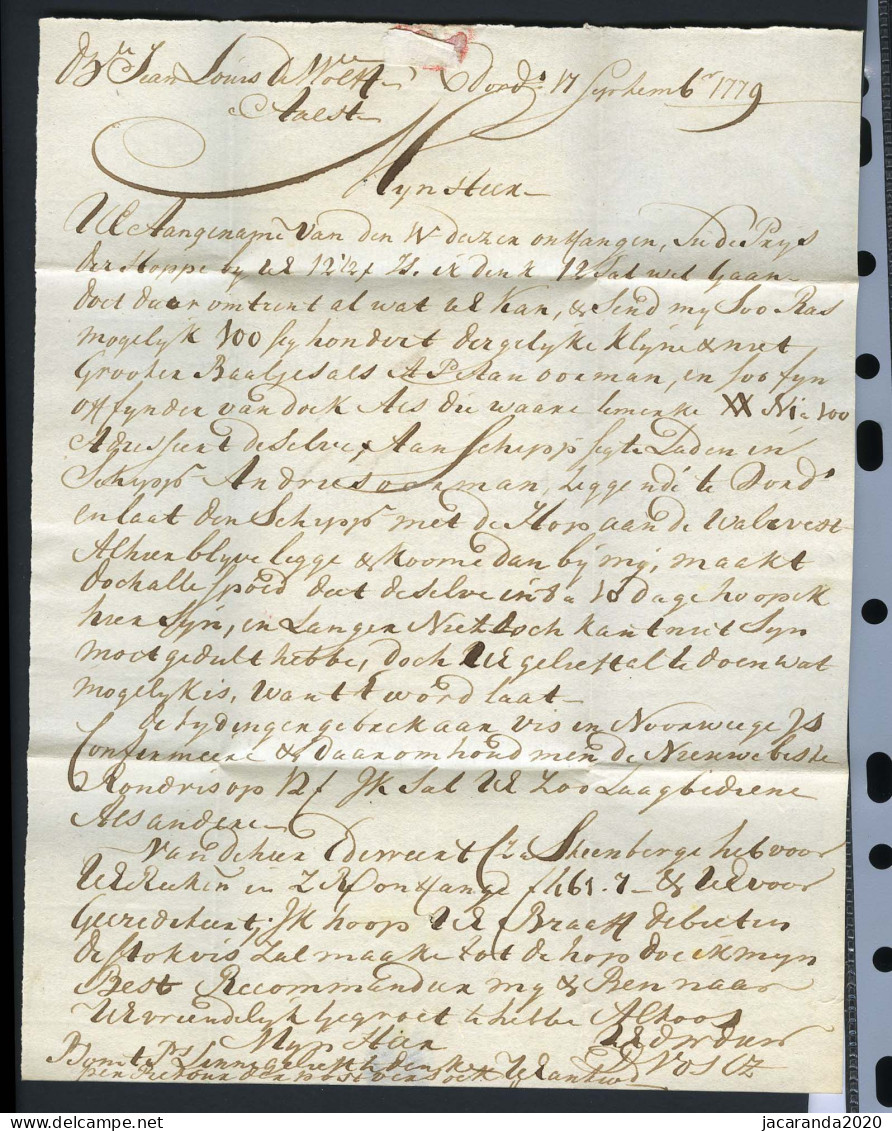 Jean Louis De Wolff Dord 17 Septemb 1779
Aalst
Mynheer
UE Aangename van den dezer ontfangen, Sie de Prys
der Hoppe by UE 12 1/2 f is. ik denk 12 Sal wel Gaan
doet daar omtrent al wat UE Kan, & Send my Soo Ras
mogelyk 100 seg hondert dergelyke Klyne & niet
Grooter Baaltjes als en soo fyn
off fynder van doek Als die waare N 1 a 100
deselve Aan Schipp Laden in
Schipp Andries oorman, Leggende te Dord
en laat den Schipp met de Hop aan de
Alhier blyve legge & koome dan by my, maakt
doch alle spoed dat deselve in 8 a 10 dage hoop ik
hier Syn, en Langer Niet doch kan t niet Syn
moet gedult hebbe, doch UE gelieft al te doen wat
mogelyk is, want t word laat
de tydinge gebrek aan vis in Noorwege is
Confirmeere & daarom houd men de Nieuwe beste
Rondvis op 12 f Ik Sal UE Zoo Laag bediene
Als andere
Van de heer Steenberge heb voor
UE Reekn in ontfange f 461.7 & UE voor
Gecrediteert; Ik hoop UE Braaff debietn
de Stokvis Zal maake tot de hop doe ik myn
Best Recommandeer my & Ben naar
UE vriendelyk gegroet te hebbe Altoos
Myn Heer UE dw dienr
D Vos Cz
per Retour der post